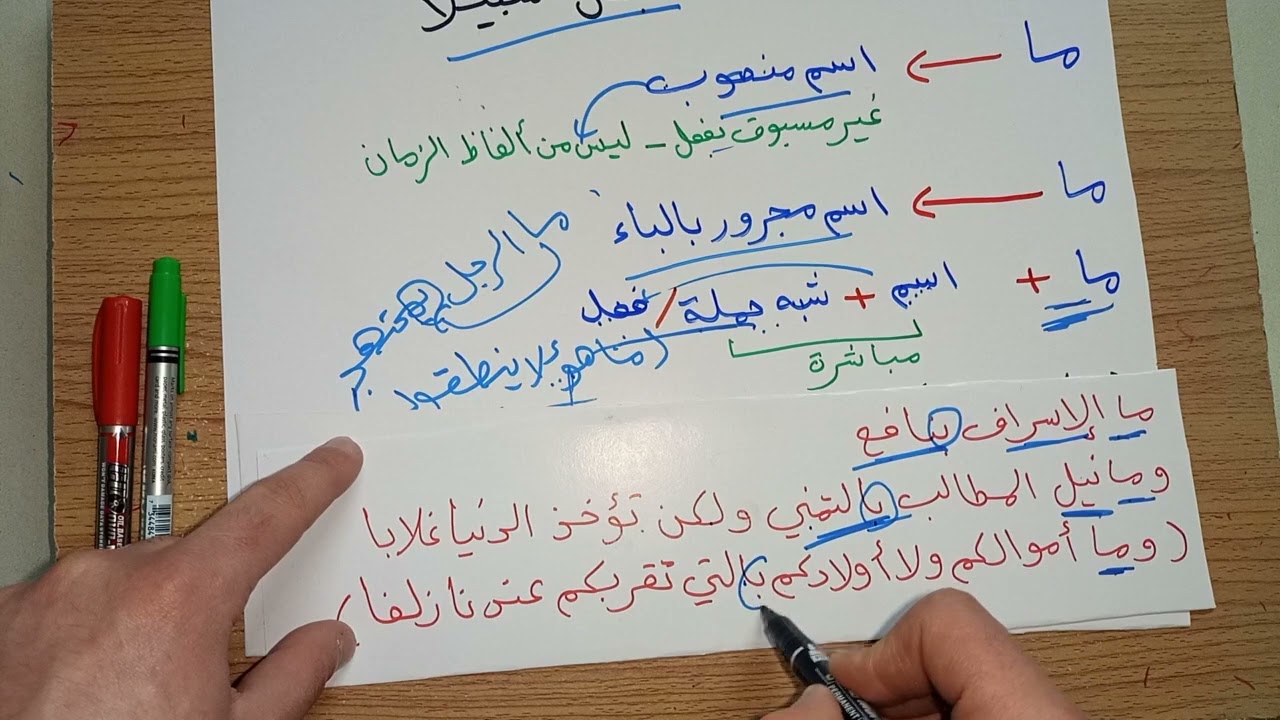 سبيلا
ما ← اسم منصوب
غير مسبوق بفعل - ليس من ألفاظ الزمان
ما ← اسم مجرور بالباء
ما + اسم + شبه جملة / فعل
مباشرة
ما الرجل
(ما هؤلا ينطقو
ما الإسراف بنافع
وما نيل المطالب بالتمني ولكن تؤخذ الدنيا غلابا
(وما أموالكم ولا أولادكم بالتي تقربكم عندنا زلفا)